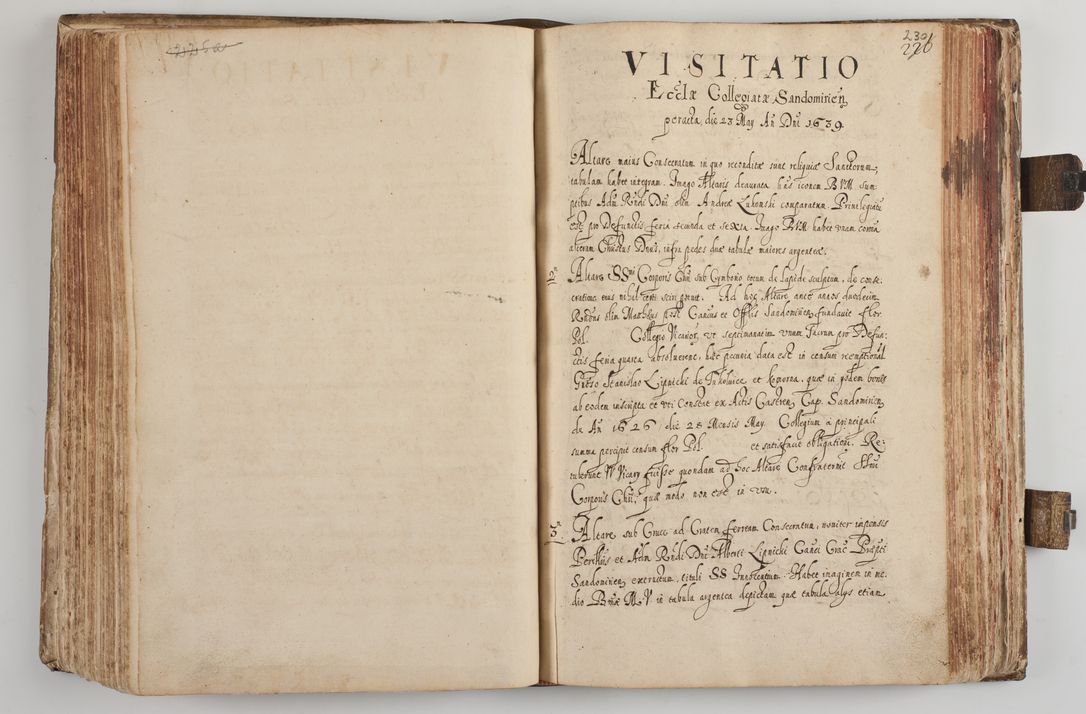 225a
230
220
VISITATIO
Ecclæ Collegiatæ Sandomirien
peracta die 23 May An Dni 1639.
Altare maius Consecratum in quo reconditæ sunt reliquiæ Sanctorum,
tabulam habet integram. Imago Altaris deaurata hns iconem BVM sum
ptibus Adm Rndi Dni olim Andreæ Lukomski comparatum. Priuilegiatu
est pro Defunctis feria secunda et sexta. Imago BVM habet vnam coronā
alteram Christus Dnus, infra pedes duæ tabulæ maiores argenteæ.
2m Altare SSmi Corporis Chri sub Cymborio totum de lapide sculptum, de conse:
cratione eius nihil certi sciri potuit. Ad hoc Altare ante annos duodecim
Rndus olim Matthæus Canus et Offlis Sandomirien fundauit flor
Pol. Collegio Vicarior, vt septimanatim vnum Sacrum pro Defun:
ctis feria quarta absoluerent, hæc pecunia data est in censum reemptional
Gnoso Stanislao Lipnicki de et Komorna, quæ in ijsdem bonis
ab eodem inscripta et vti Constat ex Actis Castren Cap. Sandomirien
de An 1626 die 28 Mensis May. Collegium a principali
summa percipit censum flor Pol. et satisfacit obligationi. Re:
tulerunt VV Vicarij fuisse quondam ad hoc Altare Confraternit SSmi
Corporis Chri, quæ modo non est in vsu.
3m Altare sub Cruce ad Cratem ferream Consecratum, nouiter impensis
Perillus et Adm Rndi Dni Alberti Lipnicki Canci Crac Præpti
Sandomirien extructum, tituli SS Innocentum. Habet imaginem in me:
dio Bmæ M. V. in tabula argentea depictam quæ tabula alys etiam